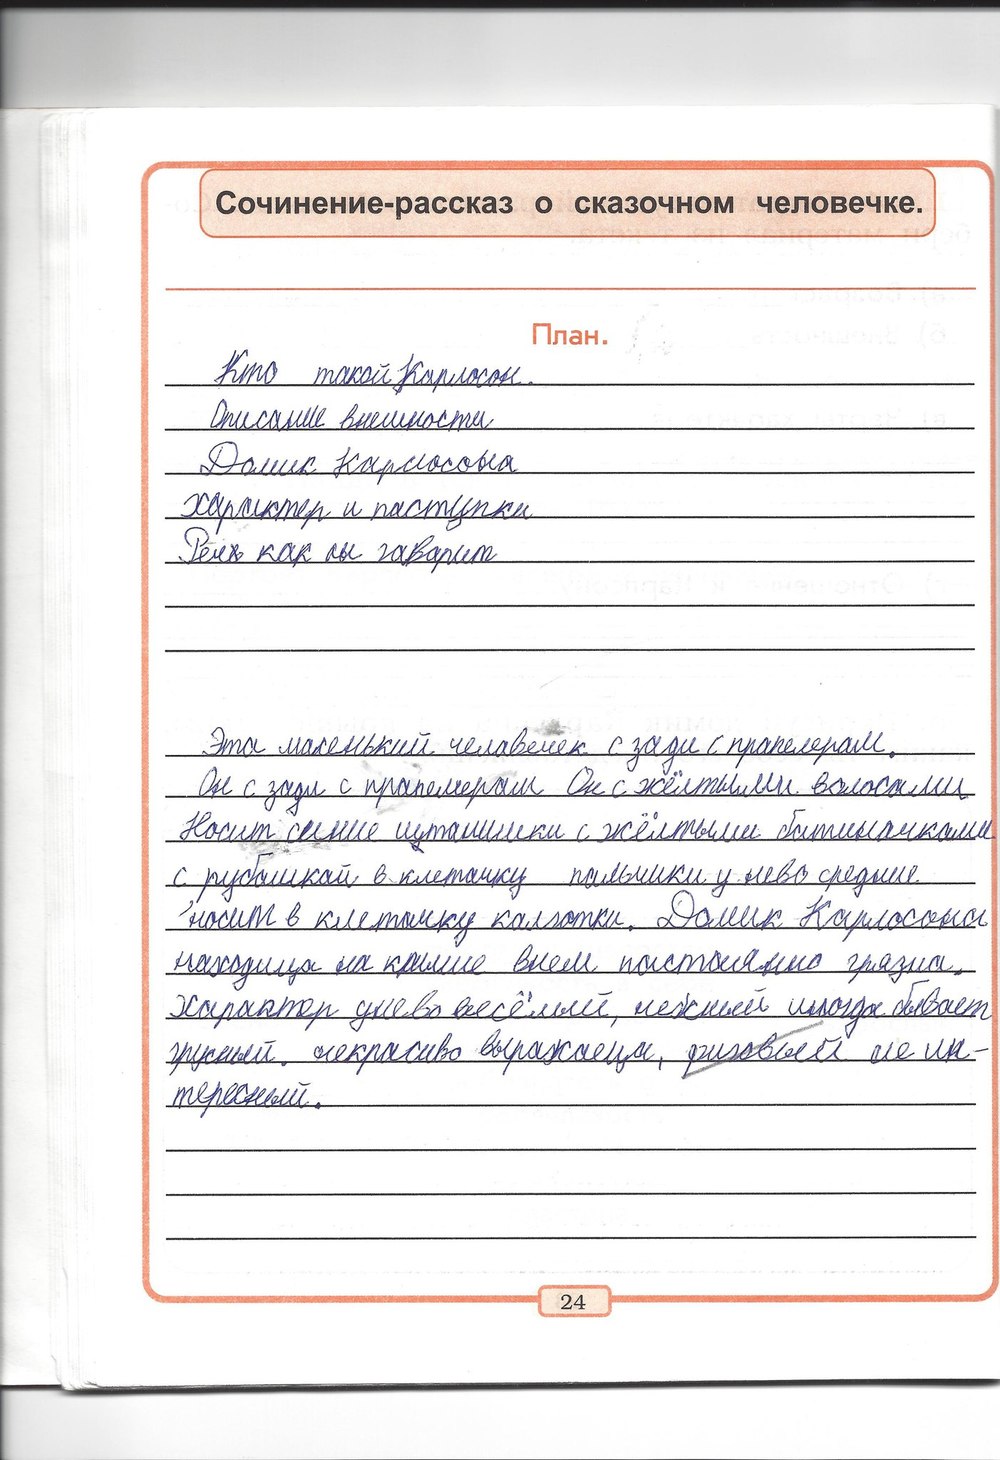 Сочинение-рассказ о сказочном человечке.
План.
Кто такой Карлосон.
Описание внешности
Домик Карлосона
характер и паступки
Речь как он гаварит
Эта маленький челавечек с зади с прапелерам.
Он с зади с прапелерам Он с жёлтыми волосами
Носит синие штанишки с жёлтыми батиначками
с рубашкой в клетачку пальчики у нево средние
носит в клетачку калготки. Домик Карлосона
находица на крыше внем пастаянно грязна.
характер унево весёлый, нежный иногда бывает
грусный. некрасиво выражаеца, не ин-
тересный.
24